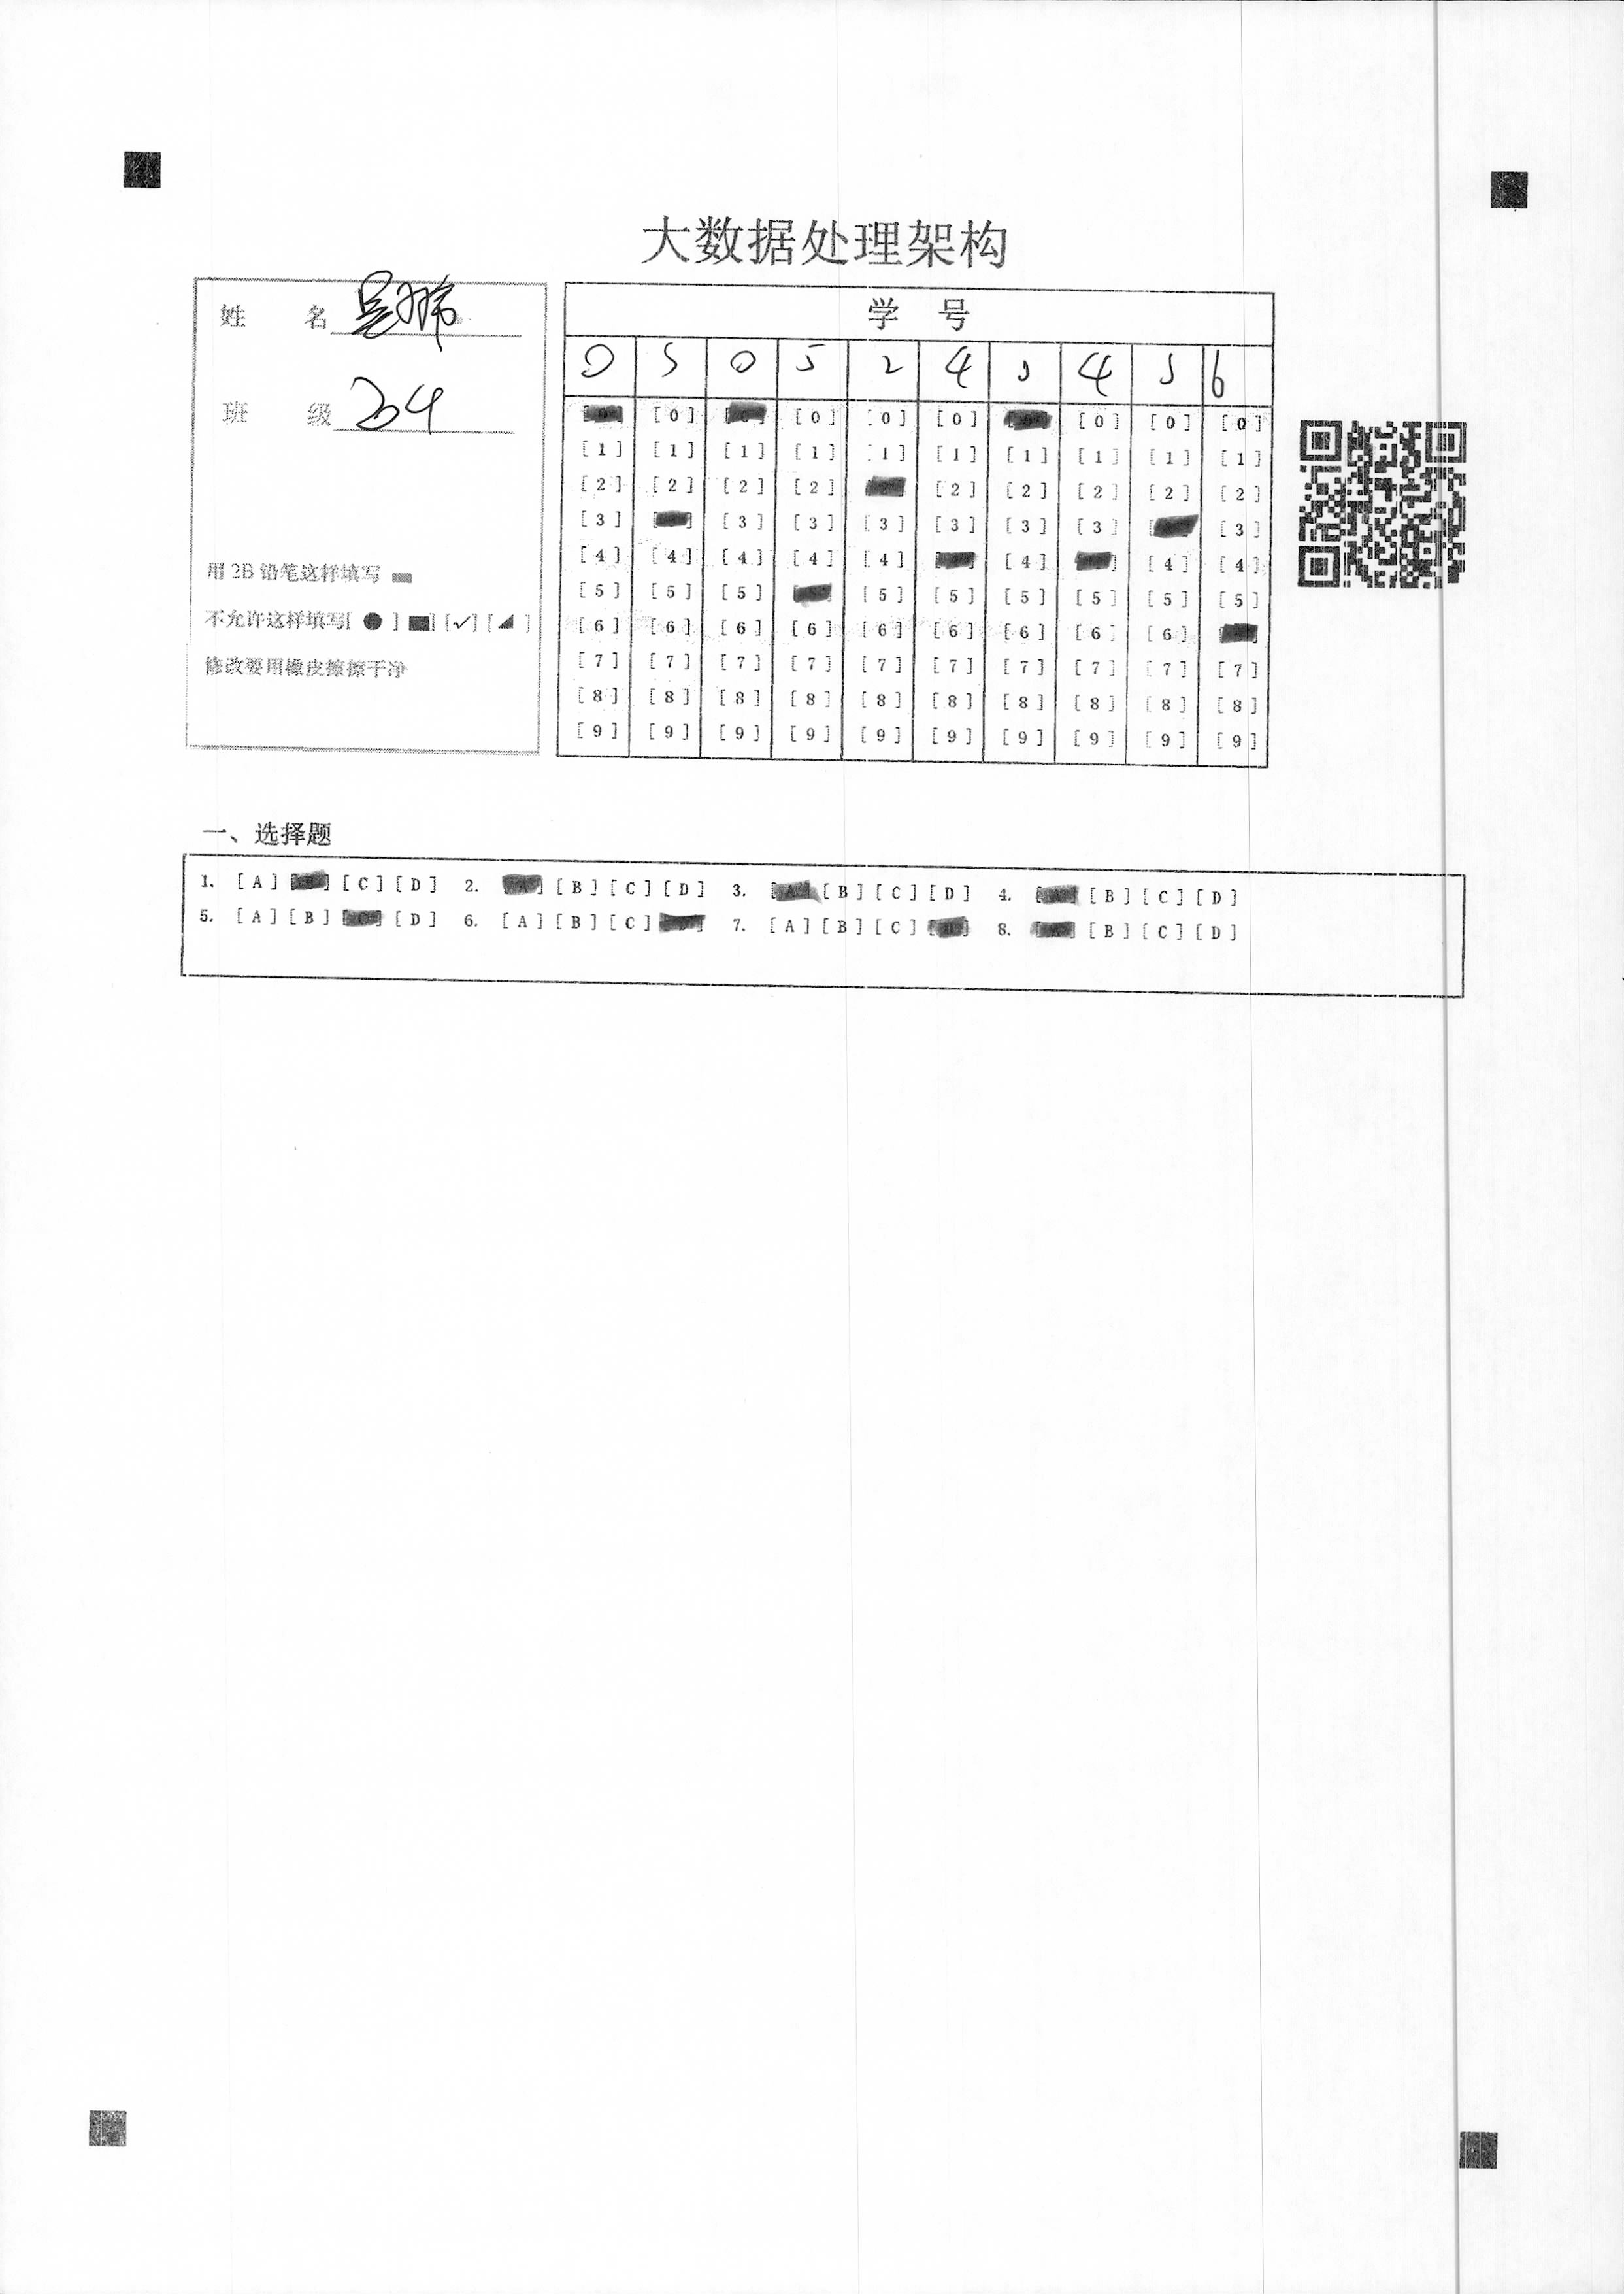 大数据处理架构
姓 名
班 级 204
用 2B 铅笔这样填写
不允许这样填写[ ● ] [✓] [ ]
修改要用橡皮擦擦干净
学 号
0 5 0 5 2 4 4 5 6
[0] [0] [0] [0] [0] [0] [0]
[1] [1] [1] [1] [1] [1] [1] [1] [1] [1]
[2] [2] [2] [2] [2] [2] [2] [2] [2]
[3] [3] [3] [3] [3] [3] [3] [3]
[4] [4] [4] [4] [4] [4] [4] [4]
[5] [5] [5] [5] [5] [5] [5] [5] [5]
[6] [6] [6] [6] [6] [6] [6] [6] [6]
[7] [7] [7] [7] [7] [7] [7] [7] [7] [7]
[8] [8] [8] [8] [8] [8] [8] [8] [8] [8]
[9] [9] [9] [9] [9] [9] [9] [9] [9] [9]
一、选择题
1. [A] [C] [D] 2. [A] [B] [C] [D] 3. [A] [B] [C] [D] 4. [A] [B] [C] [D]
5. [A] [B] [C] [D] 6. [A] [B] [C] 7. [A] [B] [C] 8. [A] [B] [C] [D]